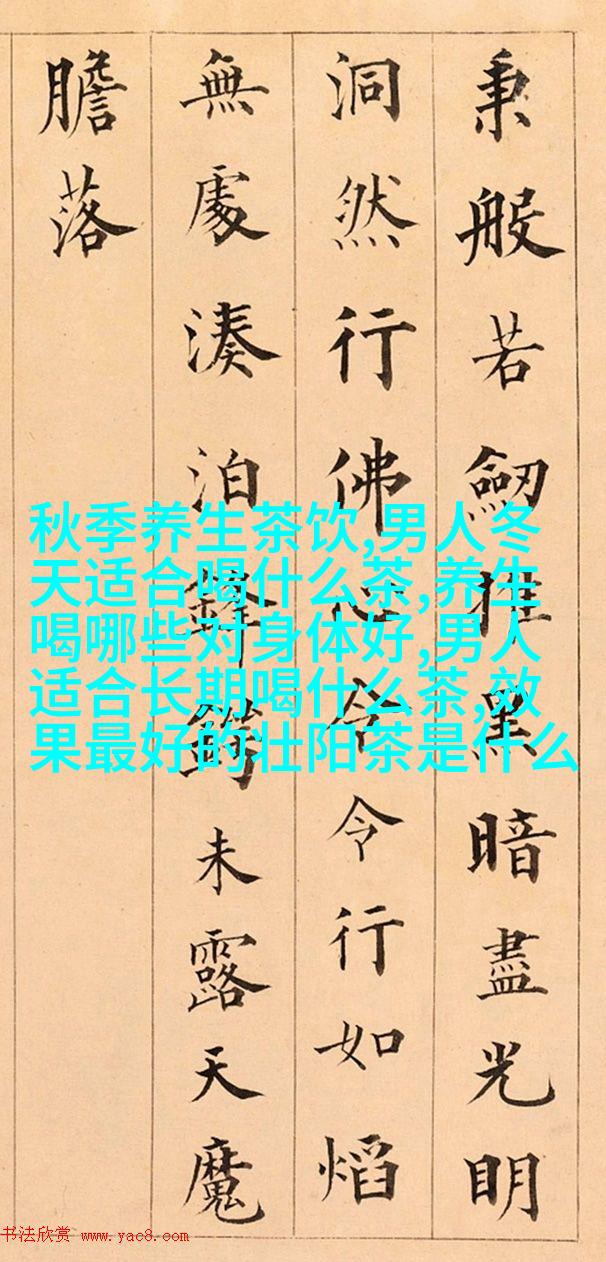 秉般若劒推黑暗盡光明
洞然行佛心令令行如熖
無處湊泊鋒鍔未露天魔
膽落
秋季养生茶饮,男人冬
天适合喝什么茶,养生
喝哪些对身体好,男人
适合长期喝什么茶,效
果最好的壮阳茶是什么
书法欣赏 www.yac8.com